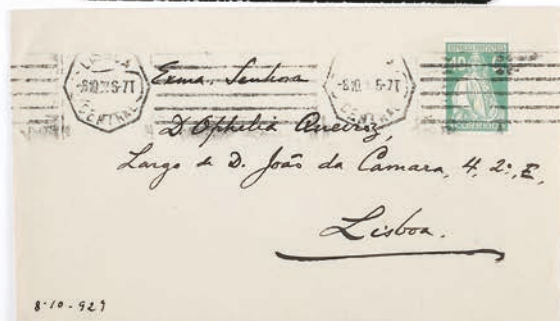 LISBOA
-8.10.29 6-7T
CENTRAL
-8.10.29 6-7T
CENTRAL
Exma. Senhora
D. Ophelia Queiroz,
Largo de D. João da Camara, 4, 2º, E,
Lisboa.
8-10-929